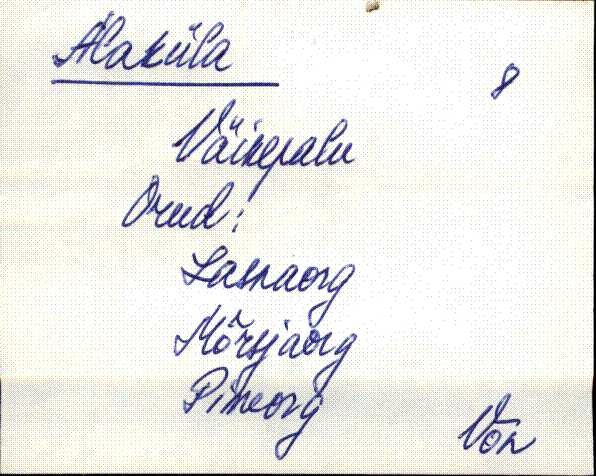 Alaküla
8
Väikepalu
Orud:
Lasnaorg
Mõrsjaorg
Pimeorg
Võn